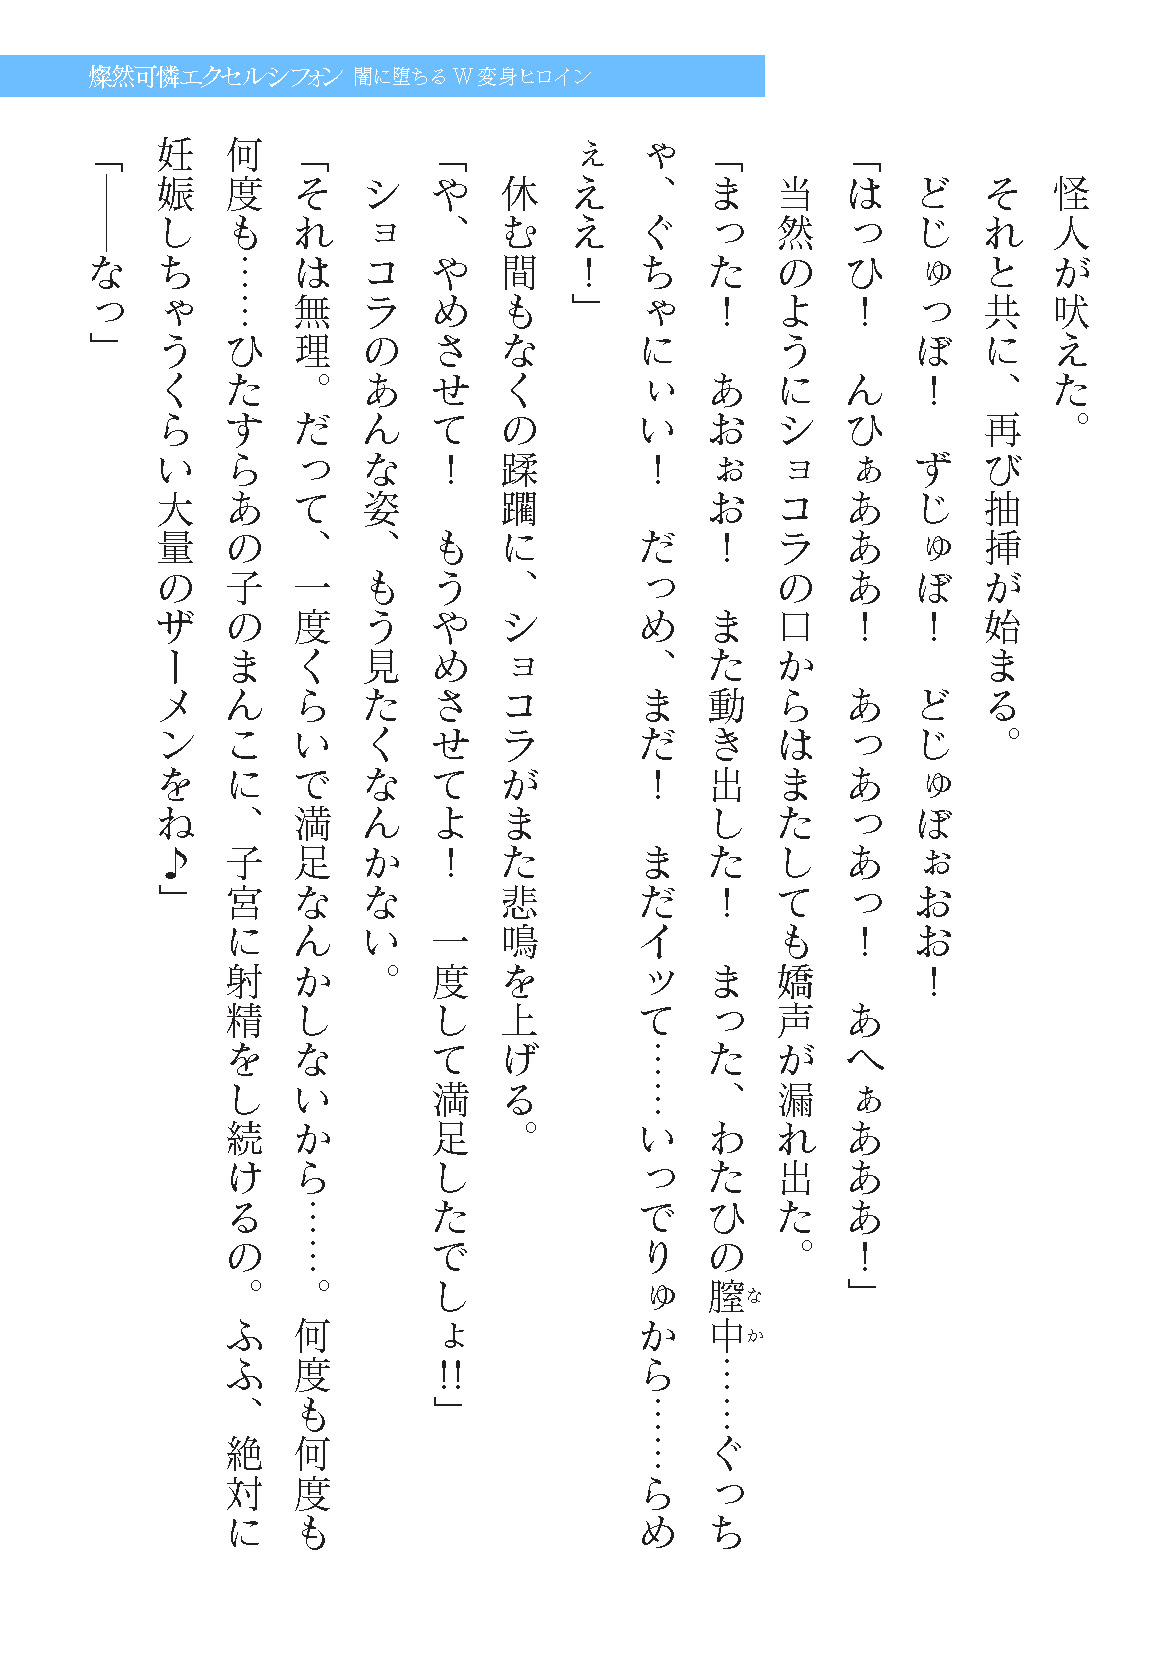 燦然可憐エクセルシフォン 闇に堕ちるW変身ヒロイン
怪人が吠えた。
それと共に、再び抽挿が始まる。
どじゅっぽ！　ずじゅぼ！　どじゅぼぉおお！
「はっひ！　んひぁあああ！　あっあっあっ！　あへぁあああ！」
当然のようにショコラの口からはまたしても嬌声が漏れ出た。
「まった！　あおぉお！　また動き出した！　まった、わたひの膣中なか……ぐっち
ゃ、ぐちゃにぃい！　だっめ、まだ！　まだイッて……いっでりゅから……らめ
ぇええ！」
休む間もなくの蹂躙に、ショコラがまた悲鳴を上げる。
「や、やめさせて！　もうやめさせてよ！　一度して満足したでしょ!!」
ショコラのあんな姿、もう見たくなんかない。
「それは無理。だって、一度くらいで満足なんかしないから……。何度も何度も
何度も……ひたすらあの子のまんこに、子宮に射精をし続けるの。ふふ、絶対に
妊娠しちゃうくらい大量のザーメンをね♪」
「――なっ」